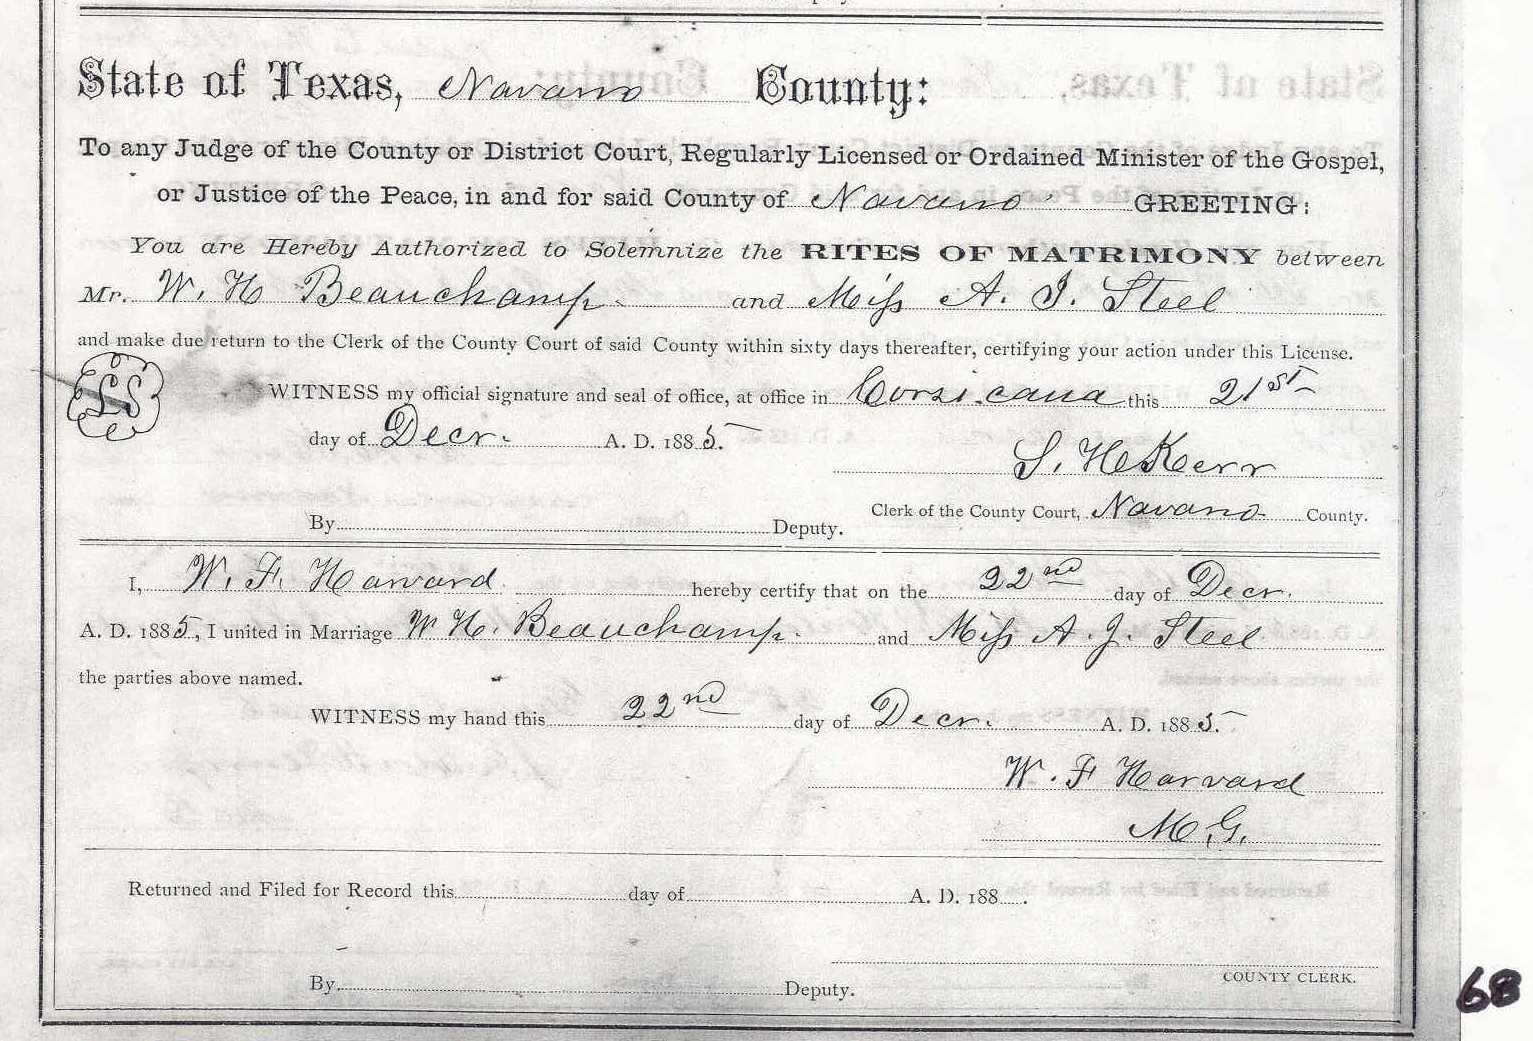 State of Texas, Navarro County:
To any Judge of the County or District Court, Regularly Licensed or Ordained Minister of the Gospel,
or Justice of the Peace, in and for said County of Navarro GREETING:
You are Hereby Authorized to Solemnize the RITES OF MATRIMONY between
Mr. W. H Beauchamp and Miss A. J. Steel
and make due return to the Clerk of the County Court of said County within sixty days thereafter, certifying your action under this License.
LS
WITNESS my official signature and seal of office, at office in Corsicana this 21st
day of Decr. A. D. 1885.
S. H Kerr
Clerk of the County Court, Navarro County.
By Deputy.
I, W. F. Harvard hereby certify that on the 22nd day of Decr.
A. D. 1885, I united in Marriage W H. Beauchamp. and Miss A. J. Steel
the parties above named.
WITNESS my hand this 22nd day of Decr. A. D. 1885.
W. F Harvard
M.G.
Returned and Filed for Record this day of A. D. 188 .
COUNTY CLERK.
By Deputy.
68